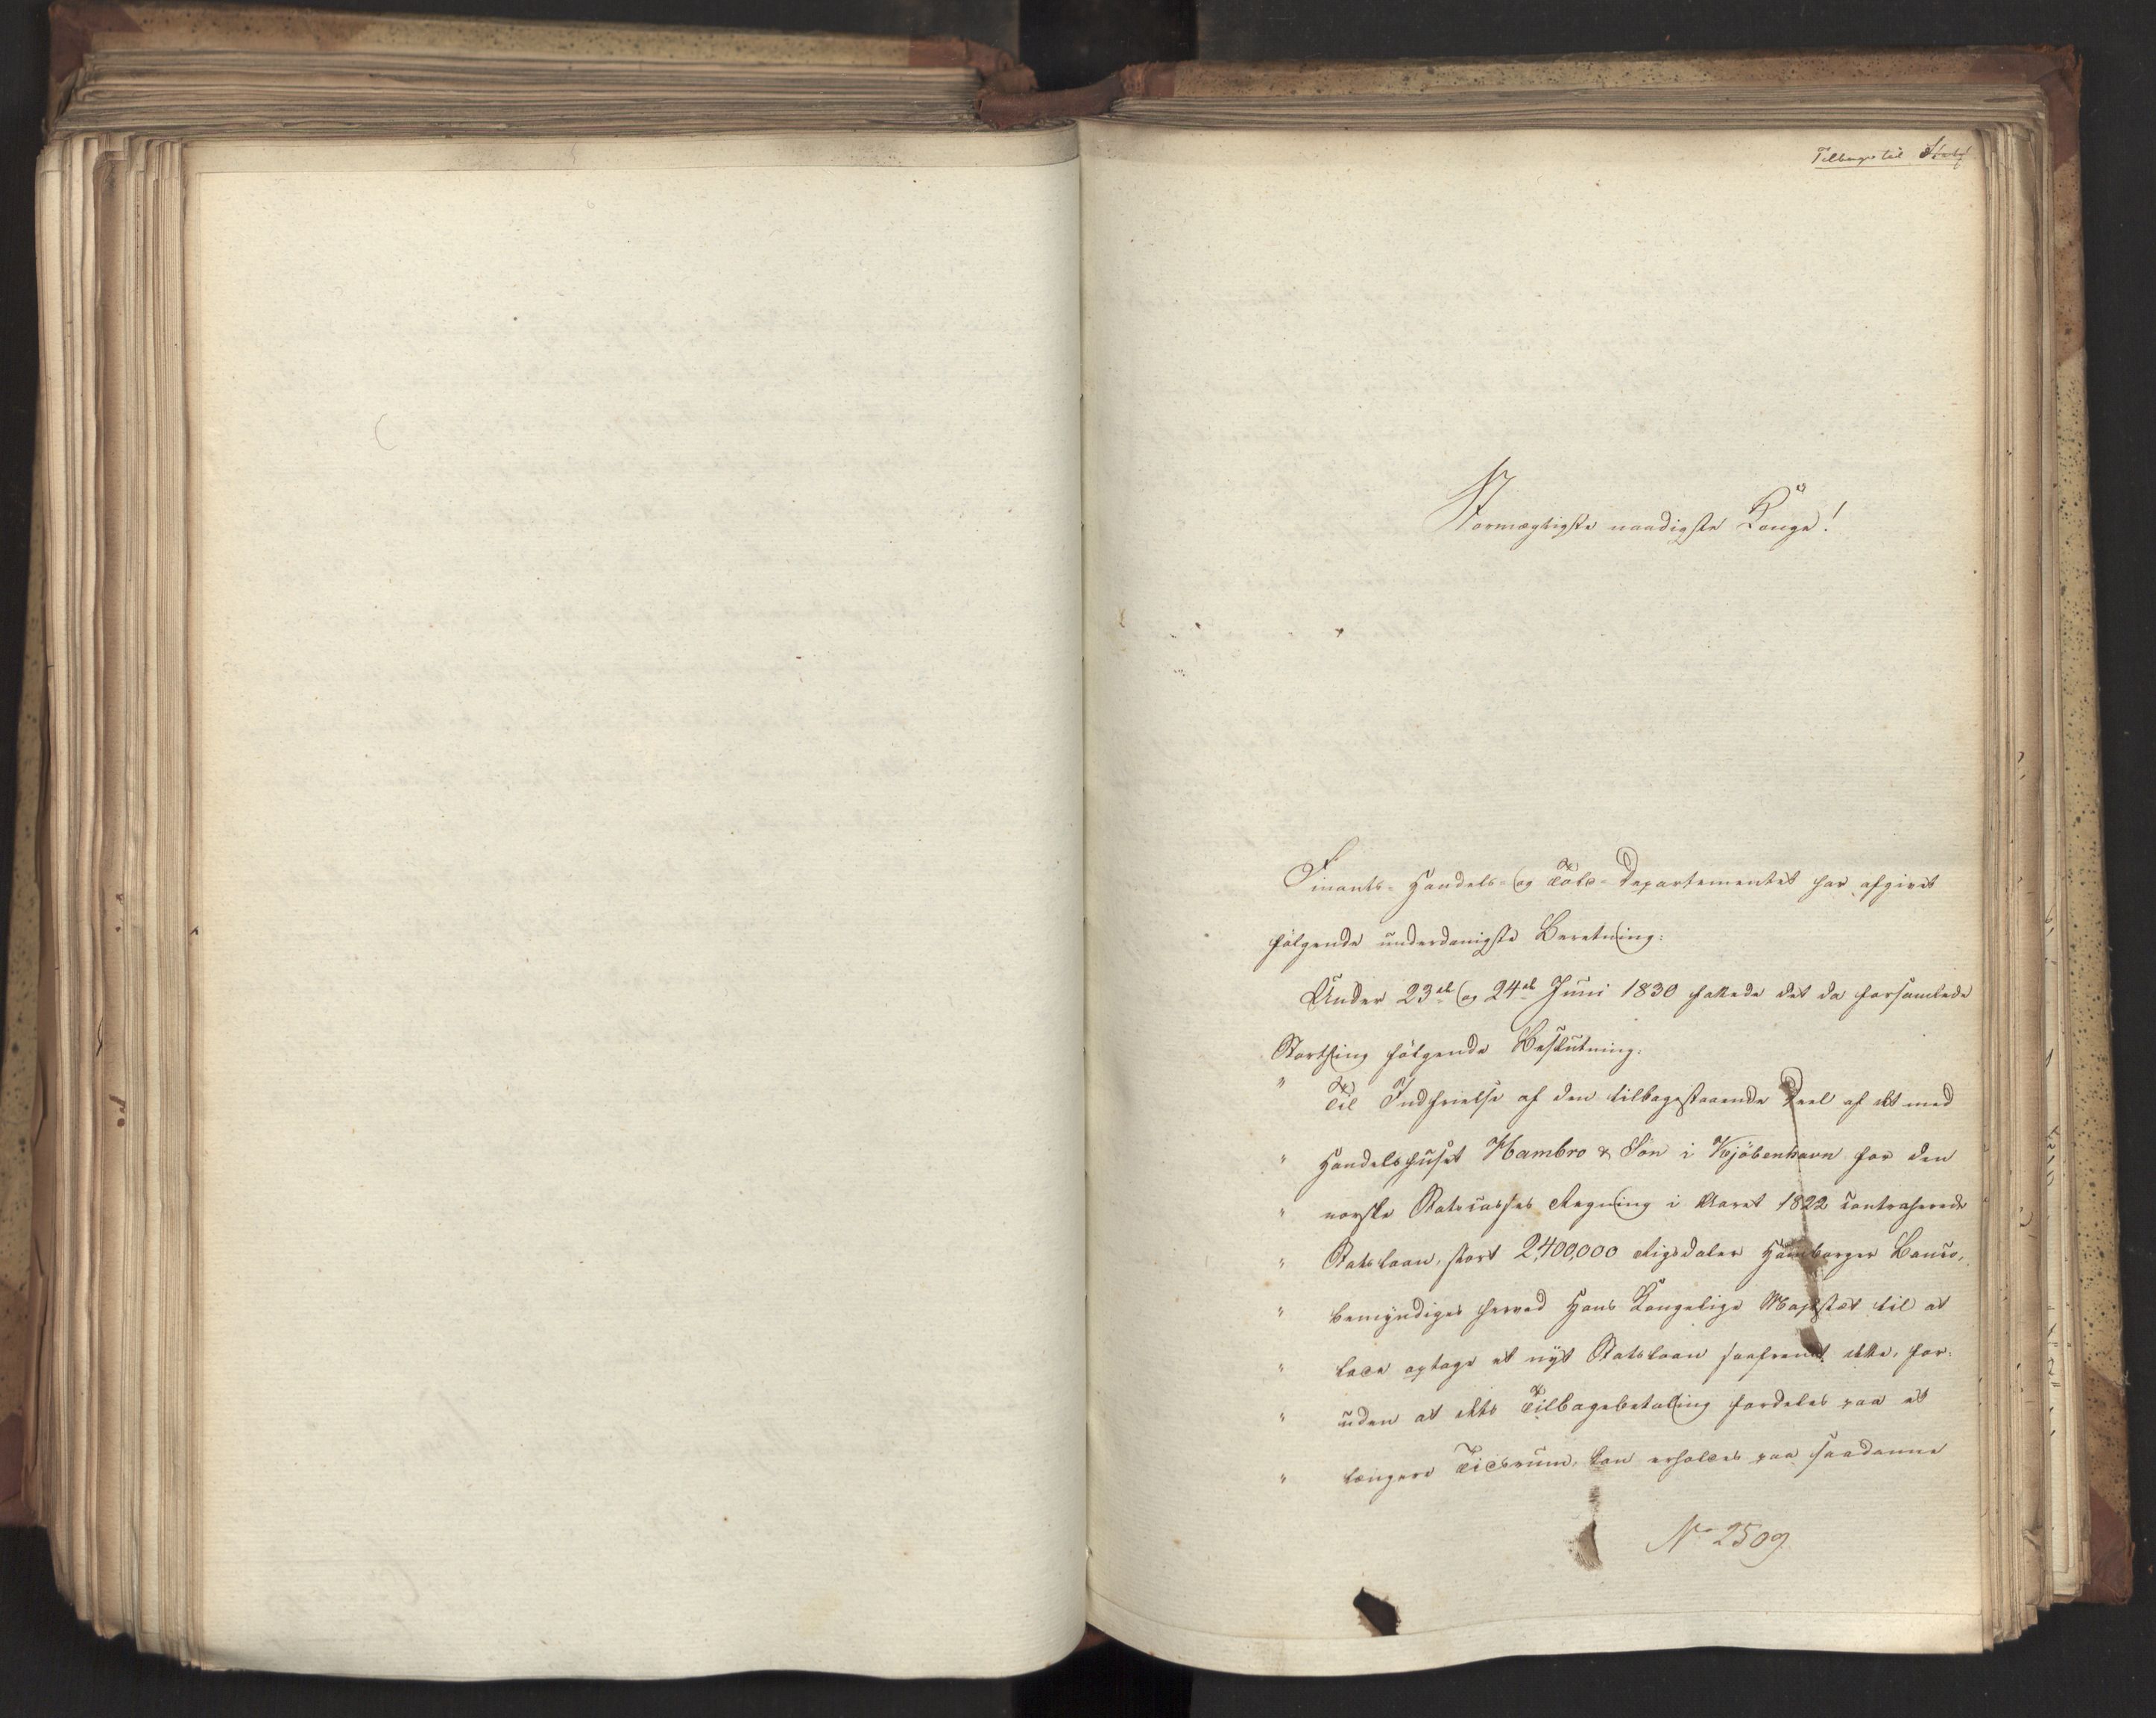 Tilbage til
Stormægtigste naadigste Konge!
Finants- Handels- og Told-Departementet har afgivet
følgende underdanigste Beretning:
Under 23de og 24de Juni 1830 fattede det da forsamlede
Storthing følgende Beslutning:
" Til Indfrielse af den tilbagestaaende Deel af det med
" Handelshuset Hambro & Søn i Kjøbenhavn for den
" norske Statscasses Regning i Aaret 1822 contraherede
" Statslaan, stort 2,400,000 Rigsdaler Hamborger Banco,
" bemyndiges herved Hans Kongelige Majestæt til at
" lade optage et nyt Statslaan saafremt dette, for-
" uden at dets Tilbagebetaling fordeles paa et
" længere Tidsrum, kan erholdes paa saadanne
No 2509